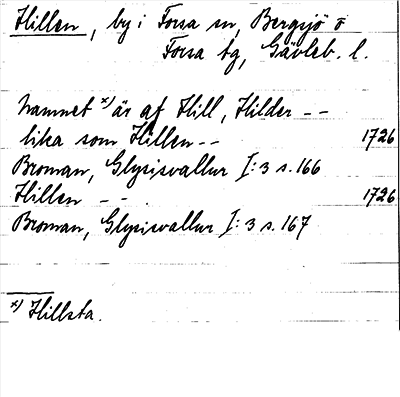 Hillen, by i Forsa sn, Bergsjö o
Forsa tg, Gävleb. l.
Namnet x) är af Hill, Hilder --
lika som Hillen -- 1726
Broman, Glysisvallur I:3 s. 166
Hillen -- . 1726
Broman, Glysisvallur I:3 s. 167
x) Hillsta.